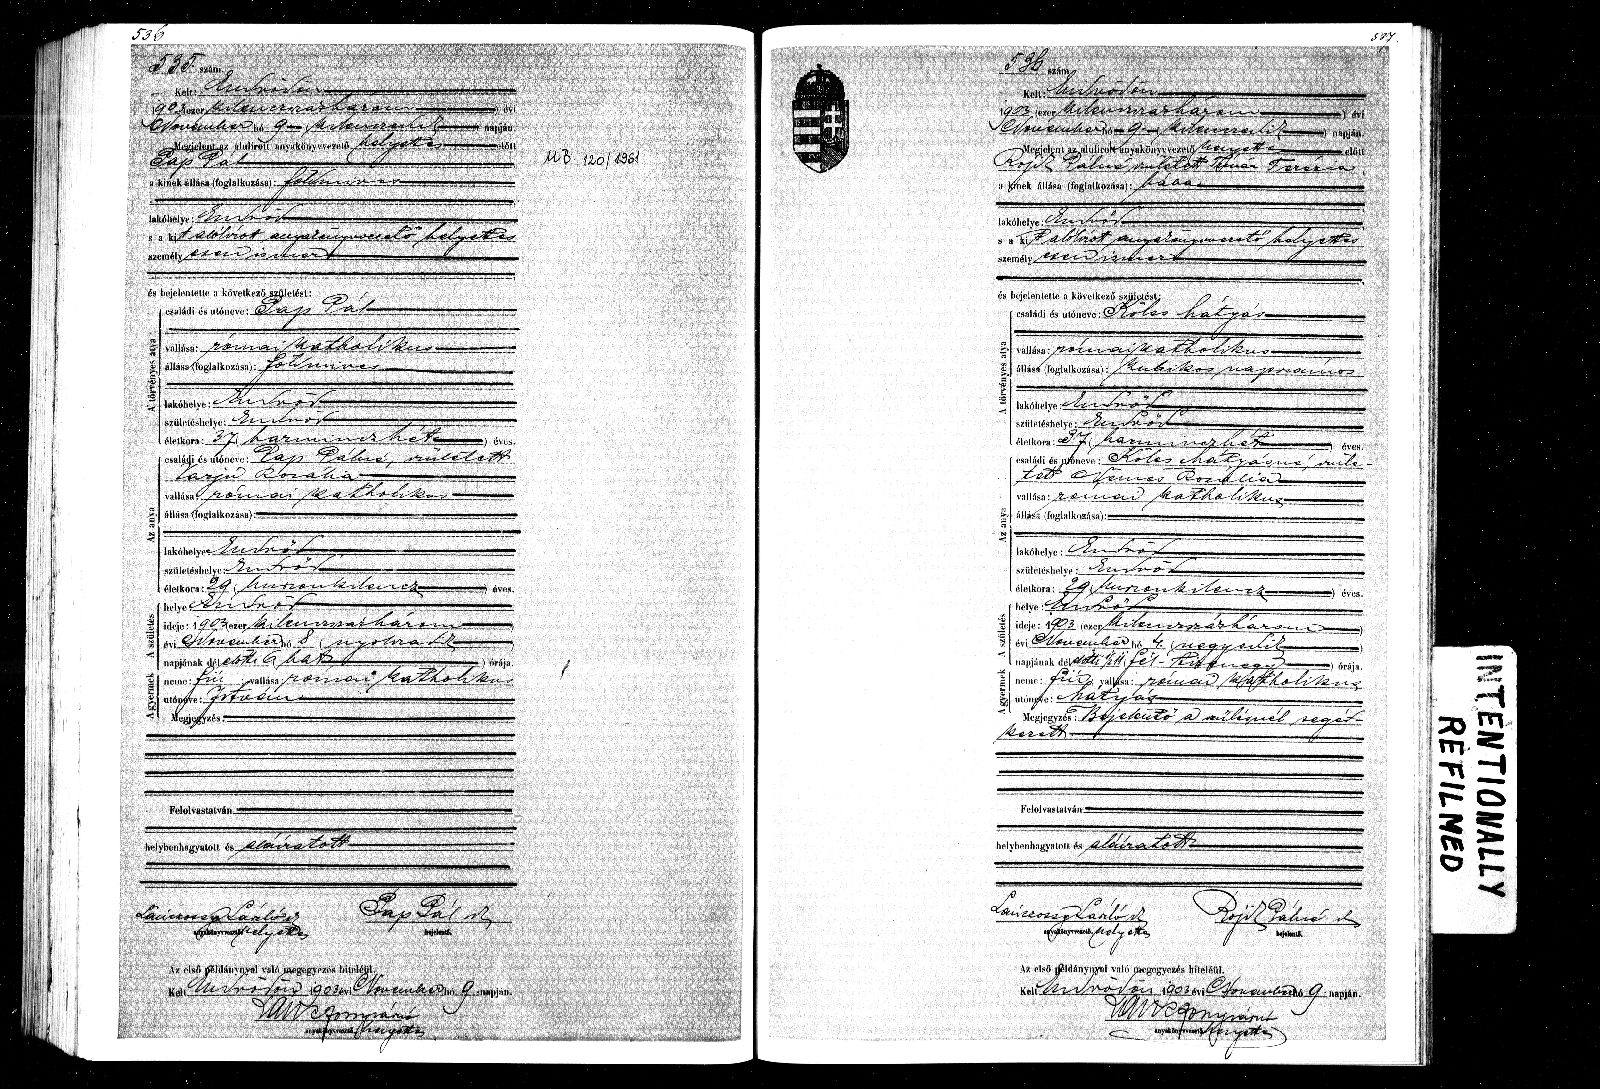 536
535. szám.
Kelt: Endrődön
1903 (ezer kilenczszázhárom) évi
November hó 9 kilenczedik napján.
Megjelent az alulirott anyakönyvvezető helyettes előtt
Pap Pál
a kinek állása (foglalkozása): földmives
lakóhelye: Endrőd
s a kit alólirott anyakönyvvezető helyettes
személyesen ismer
MB 120/1961
és bejelentette a következő születést:
A törvényes atya
családi és utóneve: Pap Pál
vallása: római katholikus
állása (foglalkozása): földmives
lakóhelye: Endrőd
születéshelye: Endrőd
életkora: 37 (harminczhét) éves.
Az anya
családi és utóneve: Pap Pálné, született
Varju Rozália
vallása: római katholikus
állása (foglalkozása):
lakóhelye: Endrőd
születéshelye: Endrőd
életkora: 29 (huszonkilencz) éves.
A születés
helye: Endrőd
ideje: 1903 (ezer kilenczszázhárom)
évi November hó 8 (nyolczadik)
napjának délelőtti 6 (hat) órája.
A gyermek
neme: fiú vallása: római katholikus
utóneve: István
Megjegyzés:
Felolvastatván
helybenhagyatott és aláiratott
László
anyakönyvvezető helyettes
Pap Pál
bejelentő.
Az első példánynyal való megegyezés hiteléül.
Kelt Endrődön 1903 évi November hó 9 napján.
anyakönyvvezető helyettes
537.
536 szám.
Kelt: Endrődön
1903 (ezer kilenczszázhárom) évi
November hó 9 (kilenczedik) napján.
Megjelent az alulirott anyakönyvvezető helyettes előtt
Rójik Pálné, született Terézia
a kinek állása (foglalkozása): bába
lakóhelye: Endrőd
s a kit alólirott anyakönyvvezető helyettes
személyesen ismer
és bejelentette a következő születést:
A törvényes atya
családi és utóneve: Kólcs Mátyás
vallása: római katholikus
állása (foglalkozása): kubikos napszámos
lakóhelye: Endrőd
születéshelye: Endrőd
életkora: 37 (harminczhét) éves.
Az anya
családi és utóneve: Kólcs Mátyásné, szüle-
tett Nemes Rozália
vallása: római katholikus
állása (foglalkozása):
lakóhelye: Endrőd
születéshelye: Endrőd
életkora: 29 (huszonkilencz) éves.
A születés
helye: Endrőd
ideje: 1903 (ezer kilenczszázhárom)
évi November hó 4 (negyedik)
napjának délelőtti fél órája.
A gyermek
neme: fiú vallása: római katholikus
utóneve: Mátyás
Megjegyzés: Bejelentő a szülésnél segéd-
kezett
Felolvastatván
helybenhagyatott és aláiratott
László
anyakönyvvezető helyettes
Rójik Pálné
bejelentő.
Az első példánynyal való megegyezés hiteléül.
Kelt Endrődön 1903 évi November hó 9 napján.
anyakönyvvezető helyettes
INTENTIONALLY
REFILMED